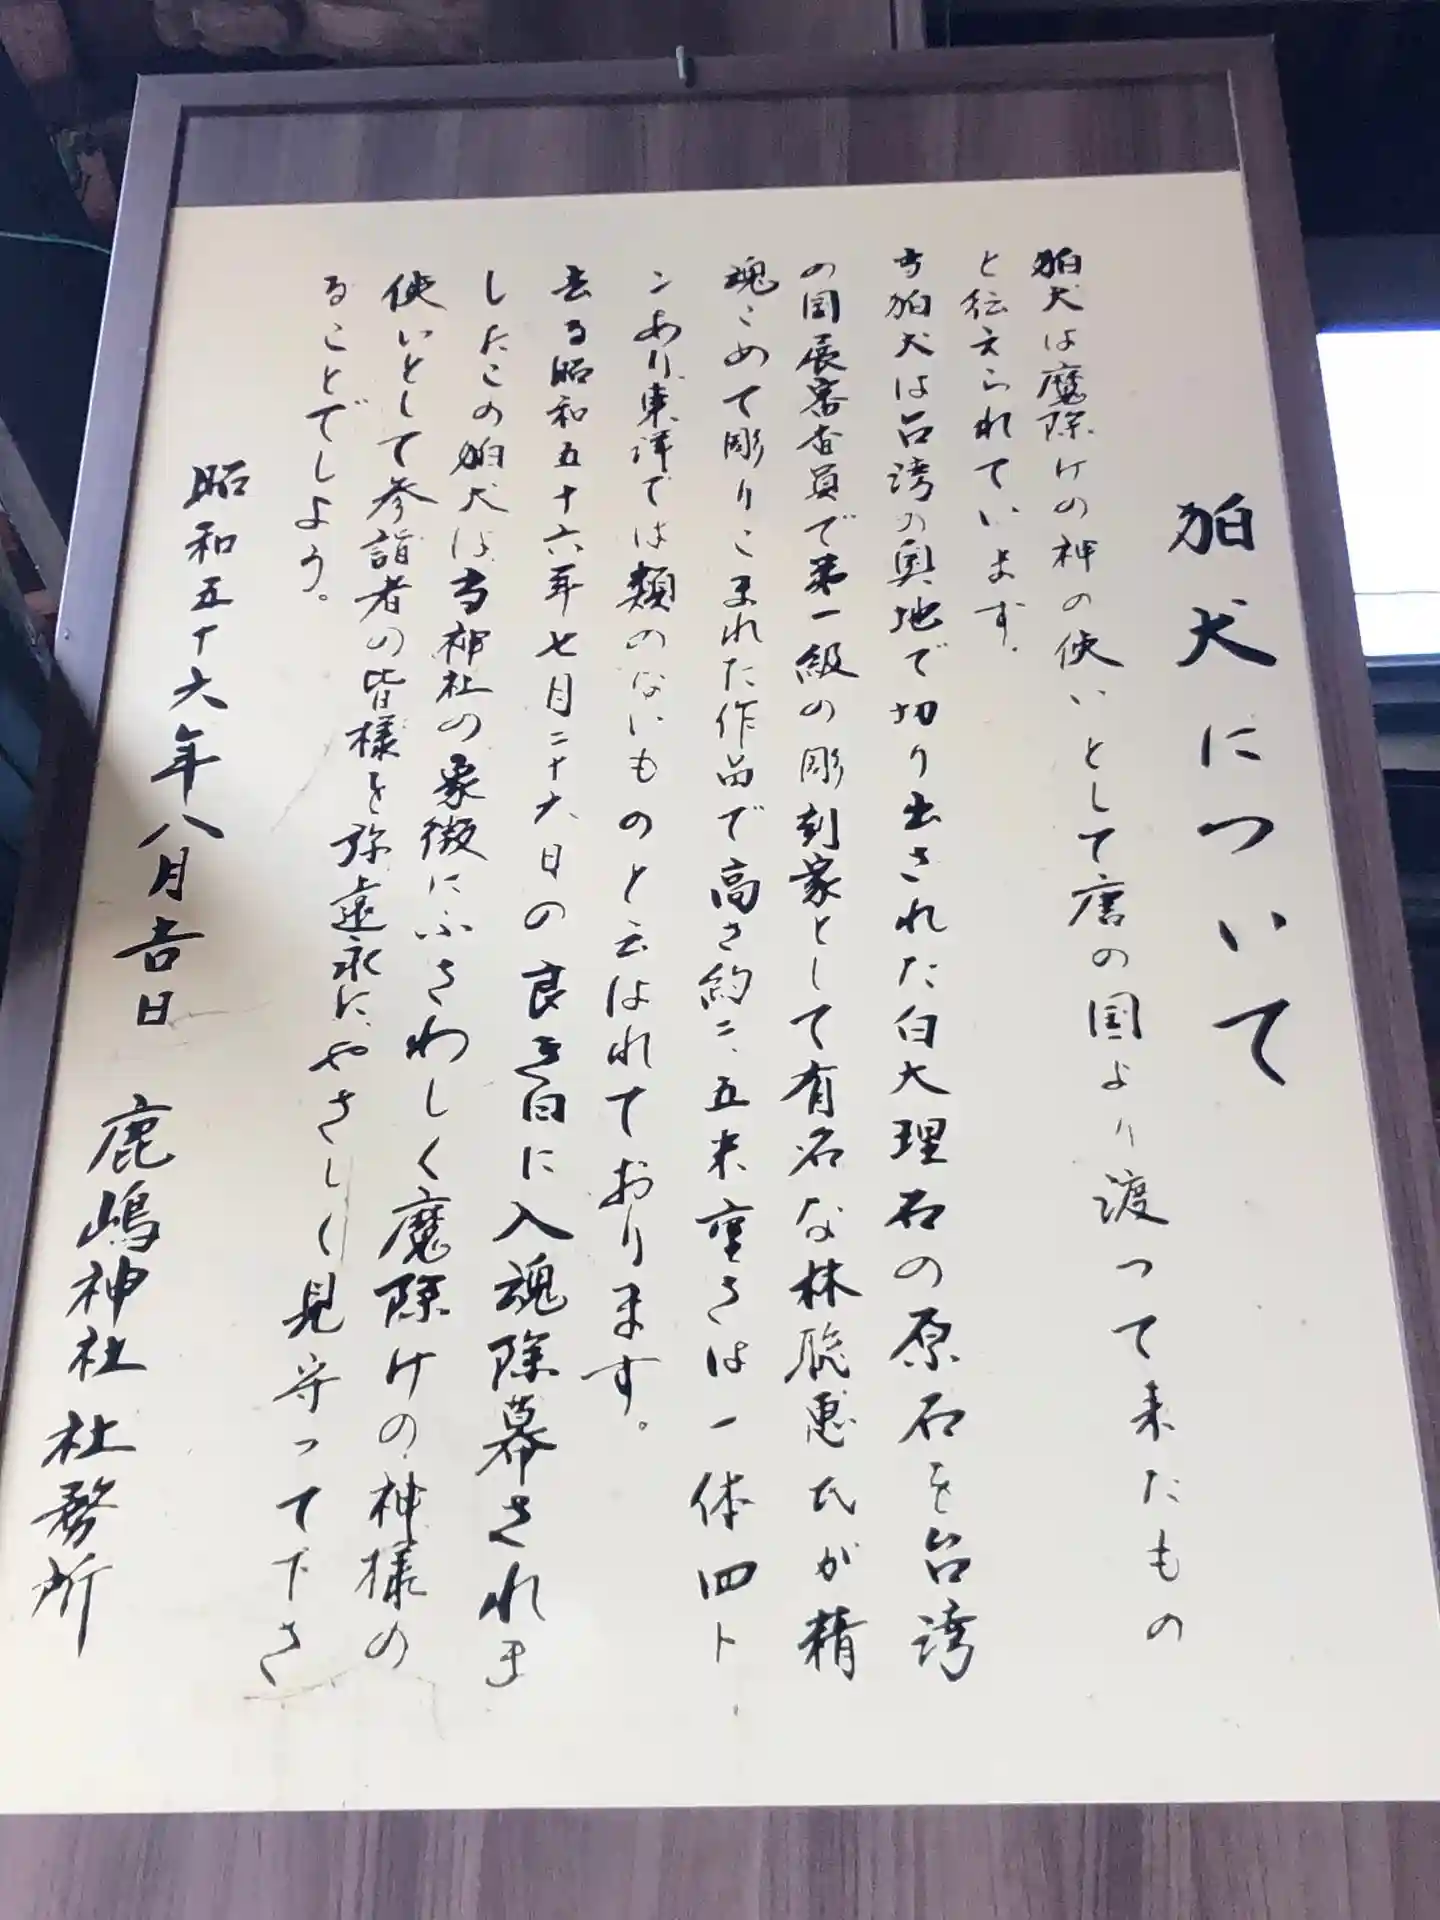 狛犬について
狛犬は魔除けの神の使いとして唐の国より渡って来たもの
と伝えられています。
当狛犬は台湾の奥地で切り出された白大理石の原石を台湾
の国展審査員で第一級の彫刻家として有名な林聡恵氏が精
魂こめて彫りこまれた作品で高さ約二、五米重さは一体四ト
ンあり、東洋では類のないものと云はれております。
去る昭和五十六年七月二十六日の良き日に入魂除幕されま
したこの狛犬は、当神社の象徴にふさわしく魔除けの神様の
使いとして参詣者の皆様を弥遠永に、やさしく見守って下さ
ることでしよう。
昭和五十六年八月吉日 鹿嶋神社 社務所